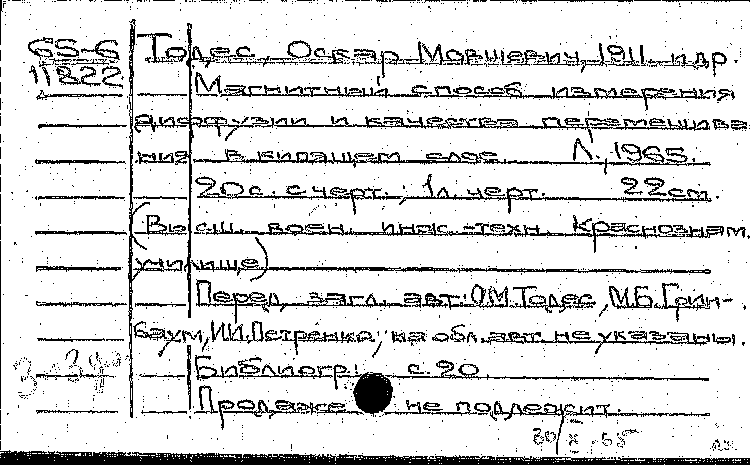 65-6 Тодес, Оскар Мовшевич, 1911. и др.
11822 Магнитный способ измерения
диффузии и качества перемешива
ния в кипящем слое. Л., 1965.
20 с. с черт.; 1 л. черт. 22 см.
(Высш. воен. инж.-техн. Краснознам.
училище)
Перед загл. авт: О.М. Тодес, М.Б. Грин-
баум, И.И. Петренко; на обл. авт. не указаны.
Библиогр: с. 20
Продаже не подлежит.
30/X.65